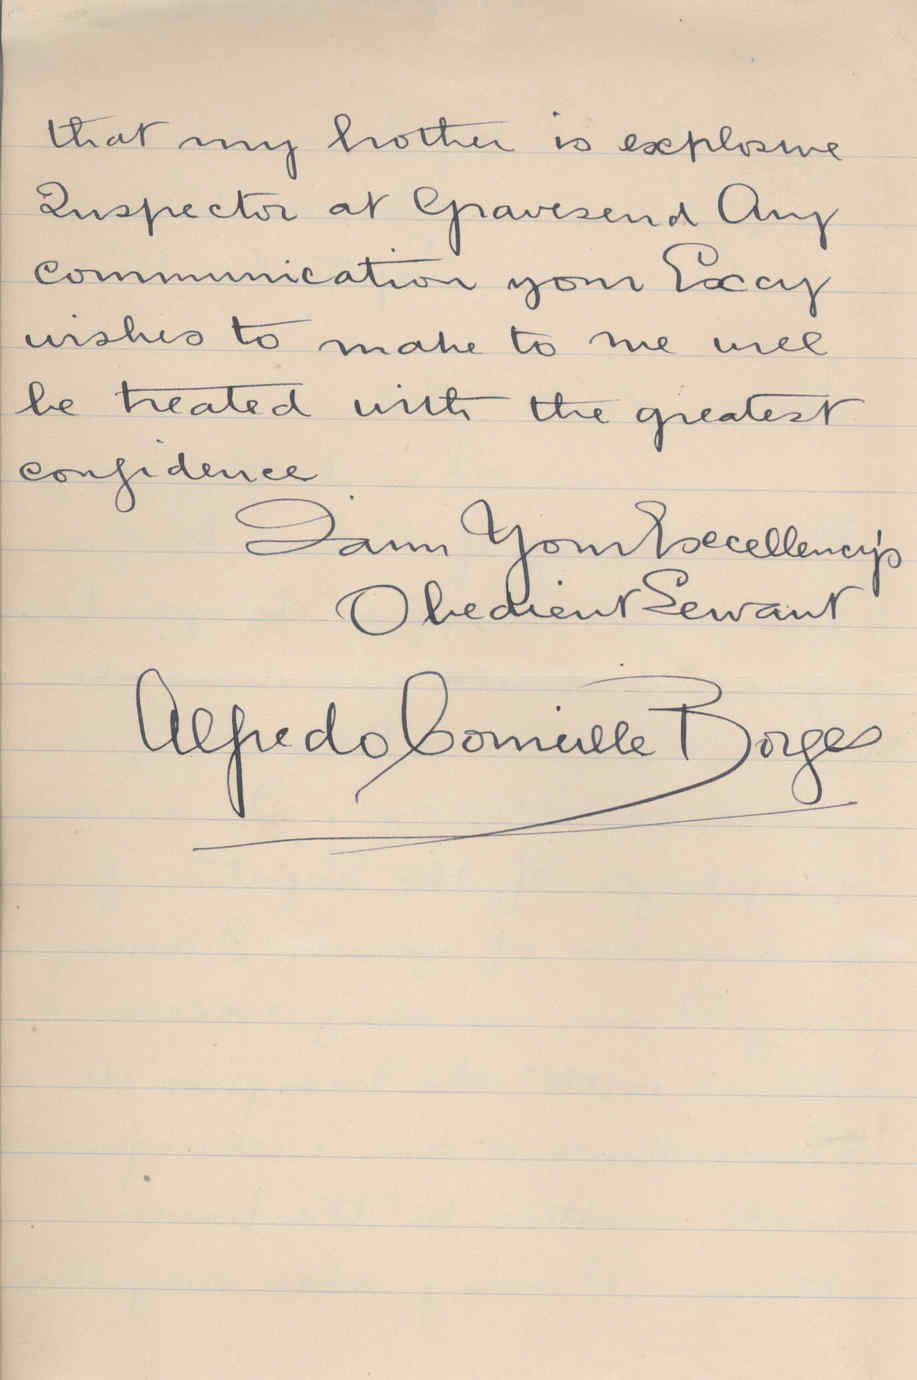 that my brother is explosive
Inspector at Gravesend Any
communication your Excy
wishes to make to me will
be treated with the greatest
confidence
I am Your Excellency's
Obedient Servant
Alfredo Corneille Borges